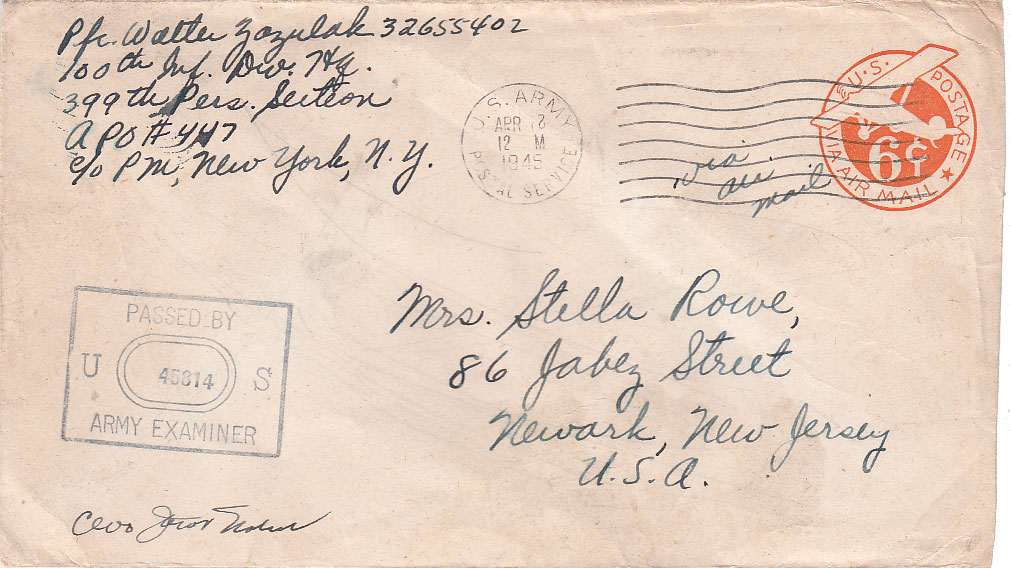 Pfc. Walter Zozulak 32655402
100th Inf. Div. Hq.
399th Pers. Section
APO # 447
c/o PM, New York, N.Y.
U.S. ARMY
APR 12
12 M
1945
POSTAL SERVICE
U.S. POSTAGE
6¢
VIA AIR MAIL
via
air
mail
Mrs. Stella Rowe,
86 Jabez Street
Newark, New Jersey
U.S.A.
PASSED BY
U 45814 S
ARMY EXAMINER